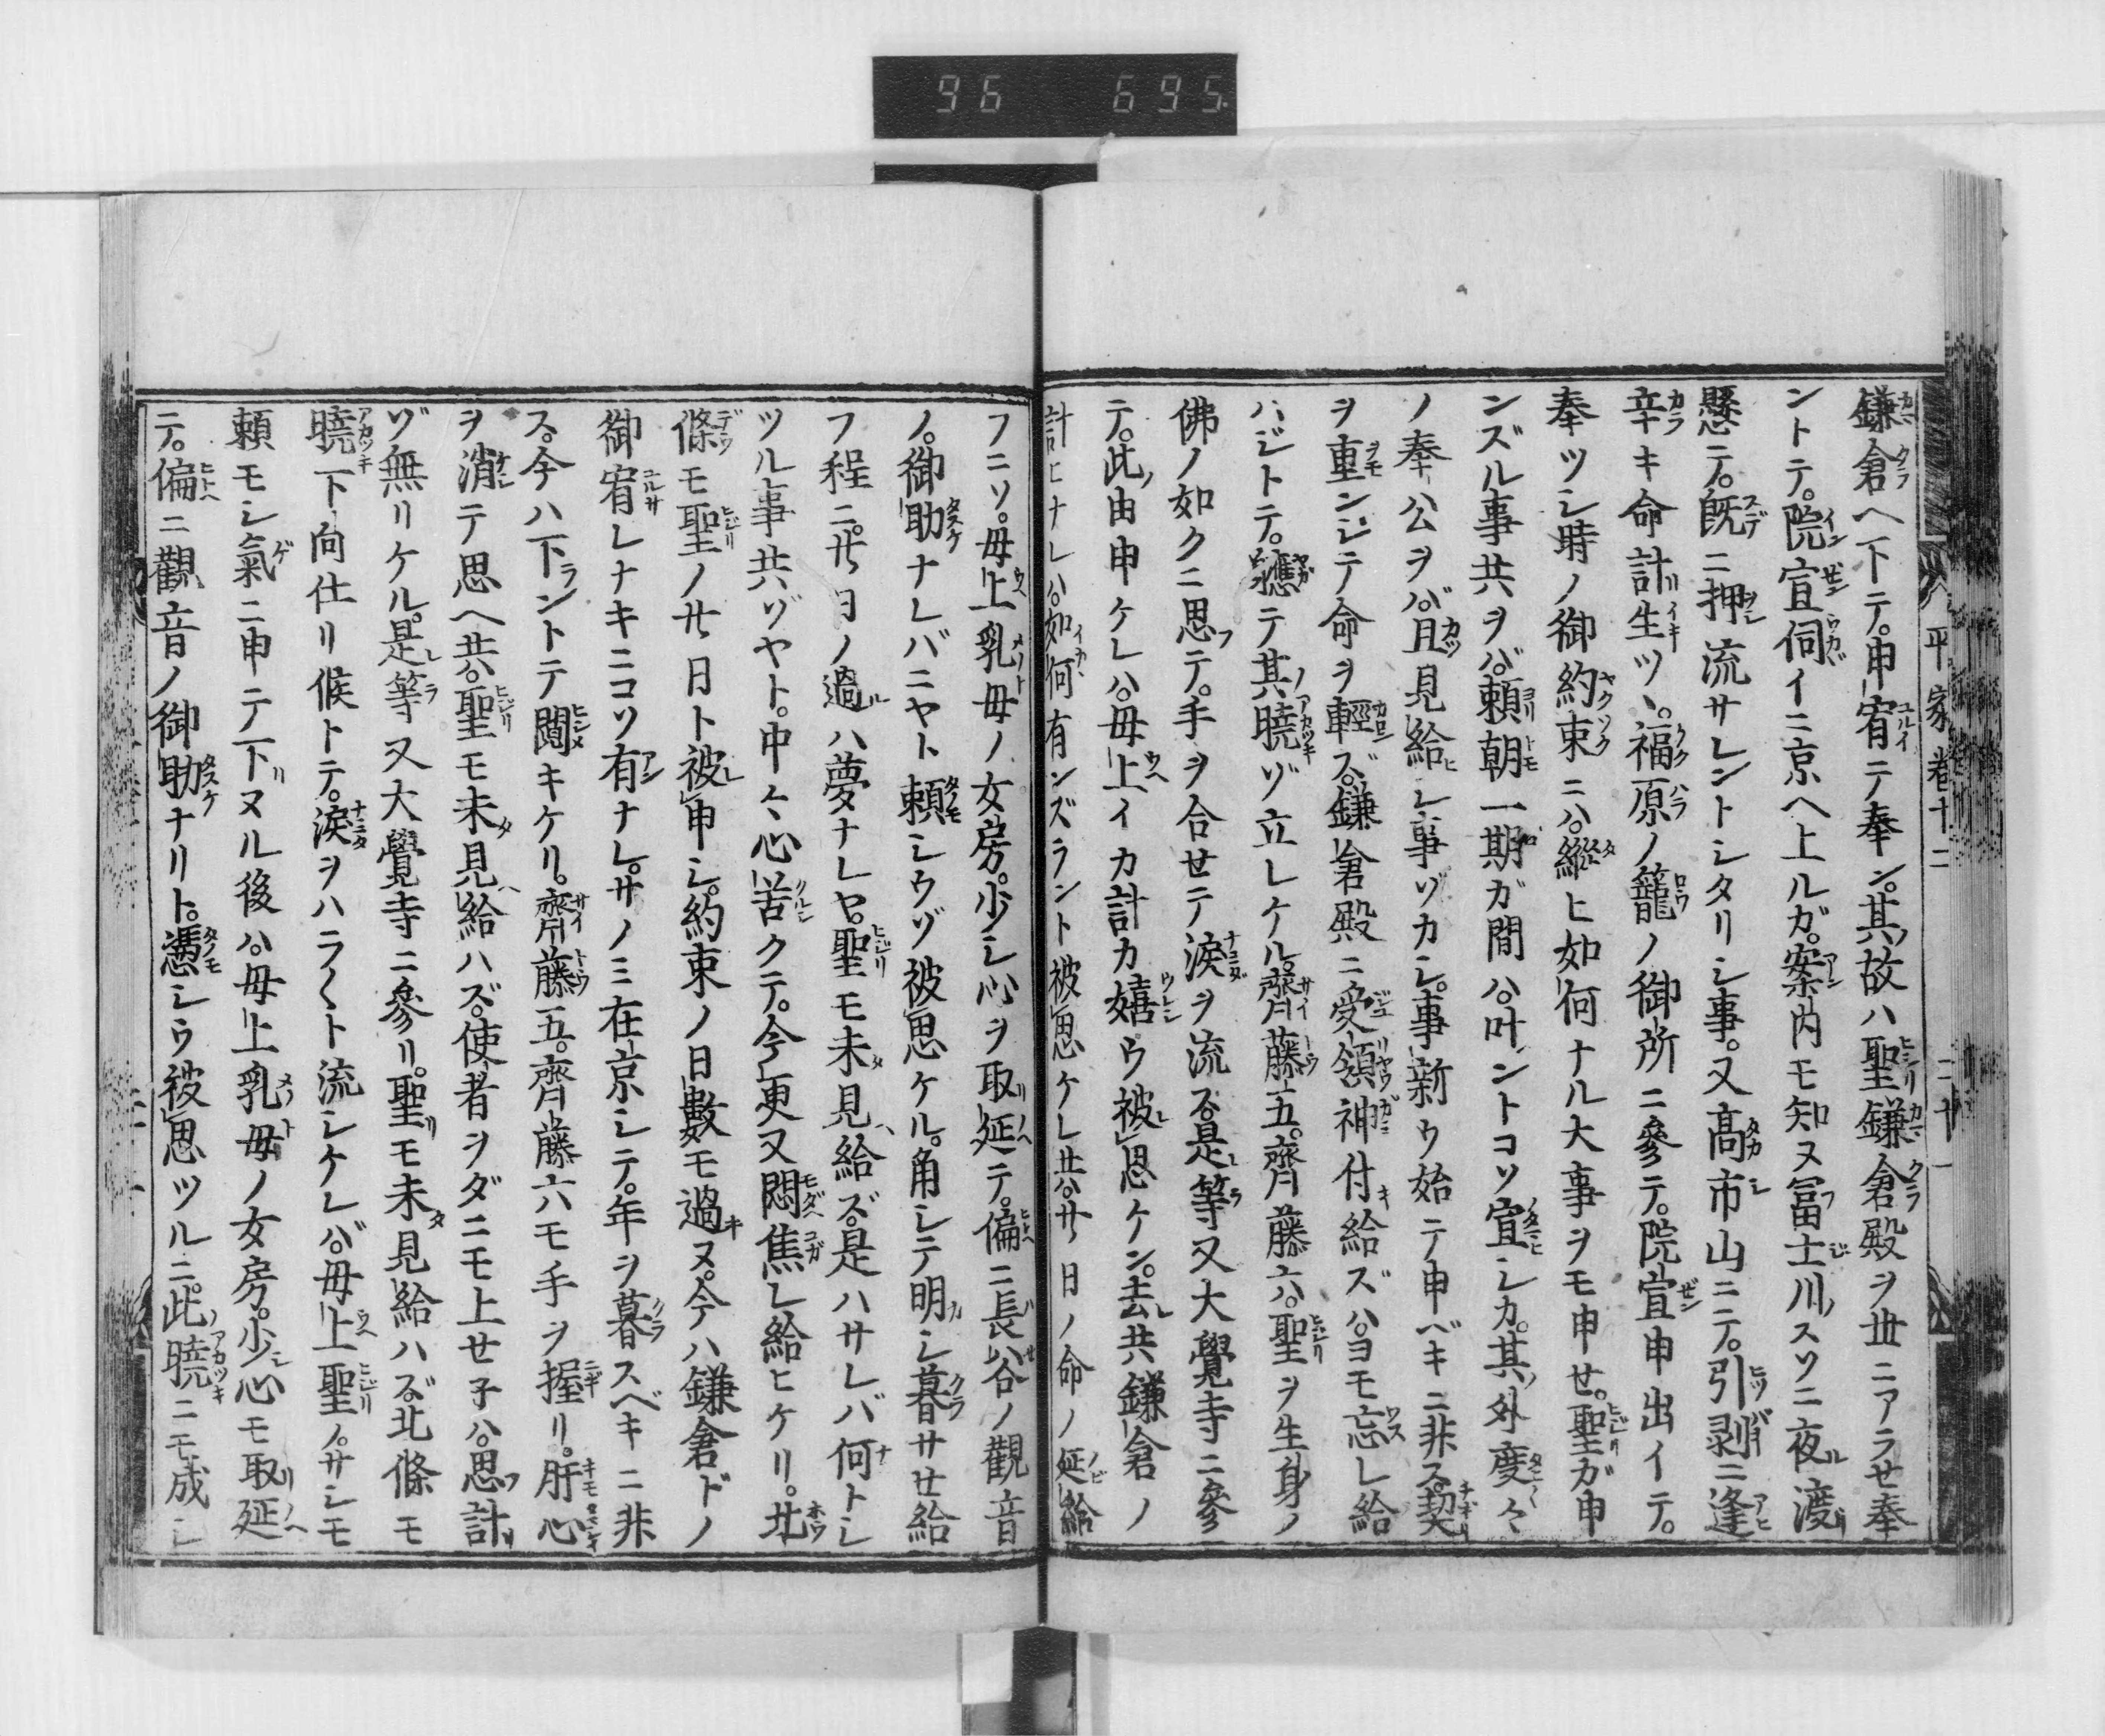 96 695
平家卷十二 二十一
鎌倉へ下テ。申宥テ奉ン。其故ハ聖鎌倉殿ヲ世ニアラせ奉
ントテ。院宣伺イニ京へ上ルガ。案内モ知ヌ冨士川ノスソニ夜渡
懸ニテ。既ニ押流サレントシタリシ事。又髙市山ニテ。引剥ニ逢
辛キ命計生ツヽ。福原ノ籠ノ御所ニ參テ。院宣申出イテ。
奉ツシ時ノ御約束ニハ。縦ヒ如何ナル大事ヲモ申せ。聖ガ申
ンズル事共ヲバ。頼朝一期ガ間ハ。叶ントコソ宣シカ。其外度々
ノ奉公ヲバ。且見給ヒシ事ゾカシ。事新ウ始テ申ベキニ非ス。契
ヲ重ンジテ命ヲ輕ズ。鎌倉殿ニ受領神付給ズハ。ヨモ忘レ給
ハジトテ。軈テ其曉ゾ立レケル。齊藤五。齊藤六。聖ヲ生身ノ
佛ノ如クニ思テ。手ヲ合せテ涙ヲ流ス。是等又大覺寺ニ參
テ。此由申ケレハ。母上イカ計カ嬉ウ被思ケン。去共鎌倉ノ
計ヒナレハ。如何有ンズラント被思ケレ共。廿日ノ命ノ延給
フニソ。母上乳母ノ女房。少シ心ヲ取延テ。偏ニ長谷ノ觀音
ノ。御助ナレバニヤト頼シウゾ被思ケル。角シテ明シ暮サせ給
フ程ニ。廿日ノ過ハ夢ナレヤ。聖モ未見給ズ。是ハサレバ何トシ
ツル事共ゾヤト。中々心苦クテ。今更又悶焦レ給ヒケリ。北
條モ聖ノ廿日ト被申シ。約束ノ日數モ過ヌ。今ハ鎌倉ドノ
御宥レナキニコソ有ナレ。サノミ在京シテ。年ヲ暮スベキニ非
ス。今ハ下ントテ鬩キケリ。齊藤五。齊藤六モ手ヲ握リ。肝心
ヲ消テ思へ共。聖モ未見給ハズ。使者ヲダニモ上せ子ハ。思計
ゾ無リケル。是等又大覺寺ニ參リ。聖モ未見給ハズ。北條モ
曉下向仕リ候トテ。涙ヲハラ〱ト流シケレバ。母上聖ノ。サシモ
頼モシ氣ニ申テ下ヌル後ハ。母上乳母ノ女房。少心モ取延
テ。偏ニ觀音ノ御助ナリト。憑シウ被思ツルニ。此曉ニモ成シ